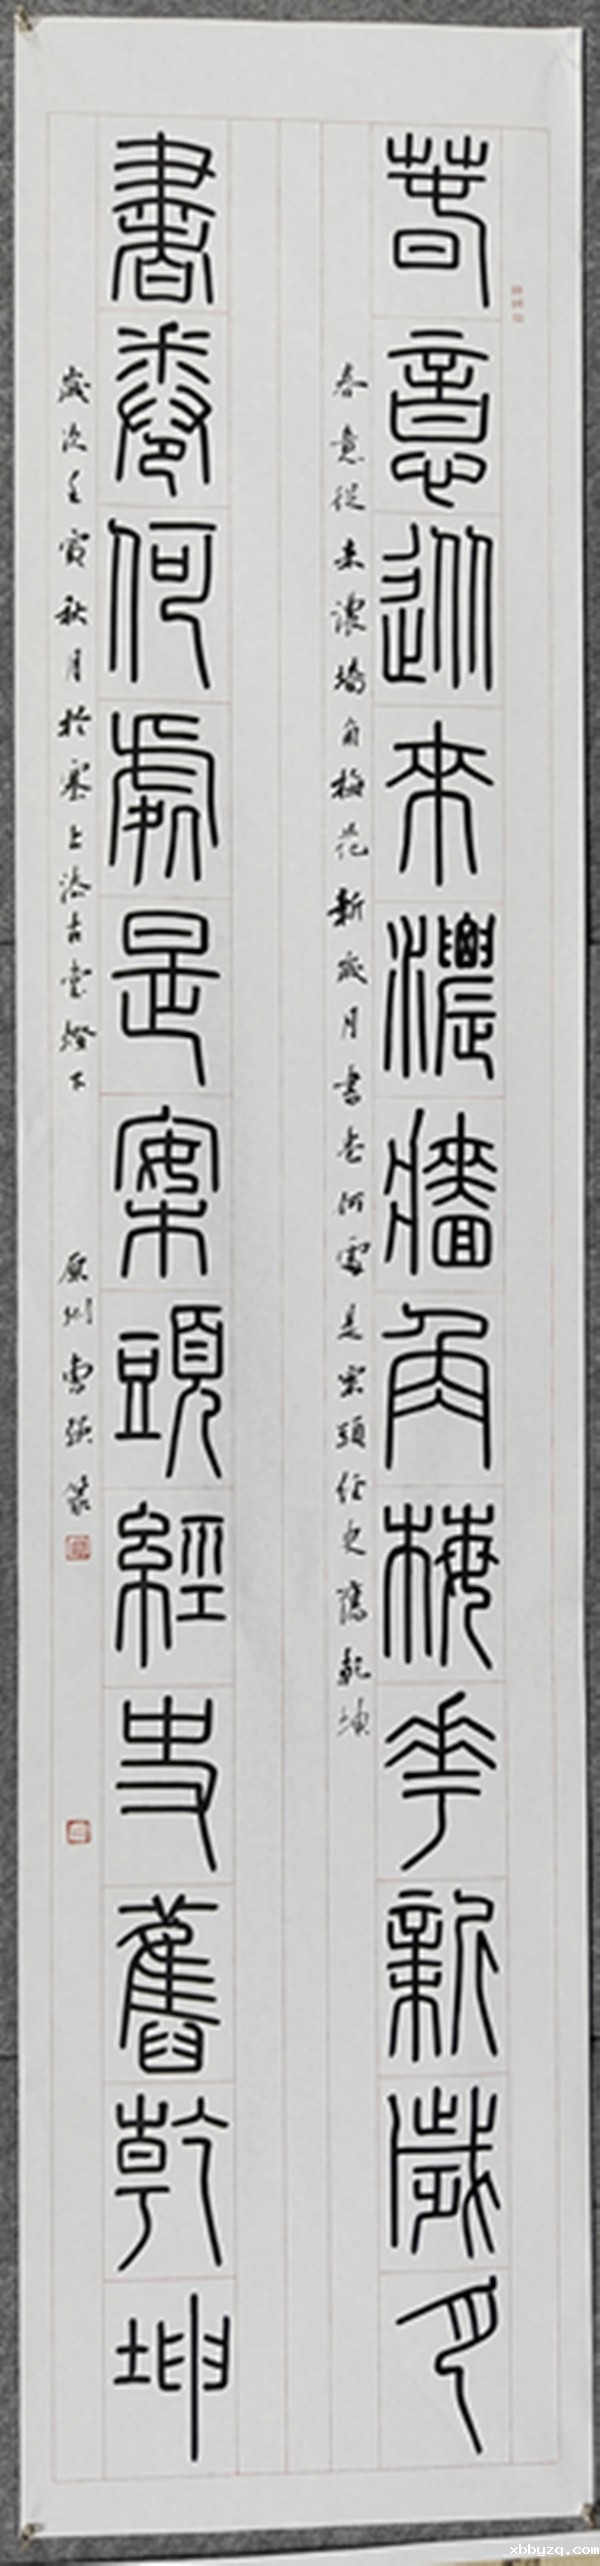 春意從來濃牆角梅華新歲月
春意從來濃墻角梅花新歲月書卷何處是案頭經史舊乾坤
書卷何處是案頭經史舊乾坤
歲次壬寅秋月於塞上古堂燈下 原州曹強篆
xbbyzq.com